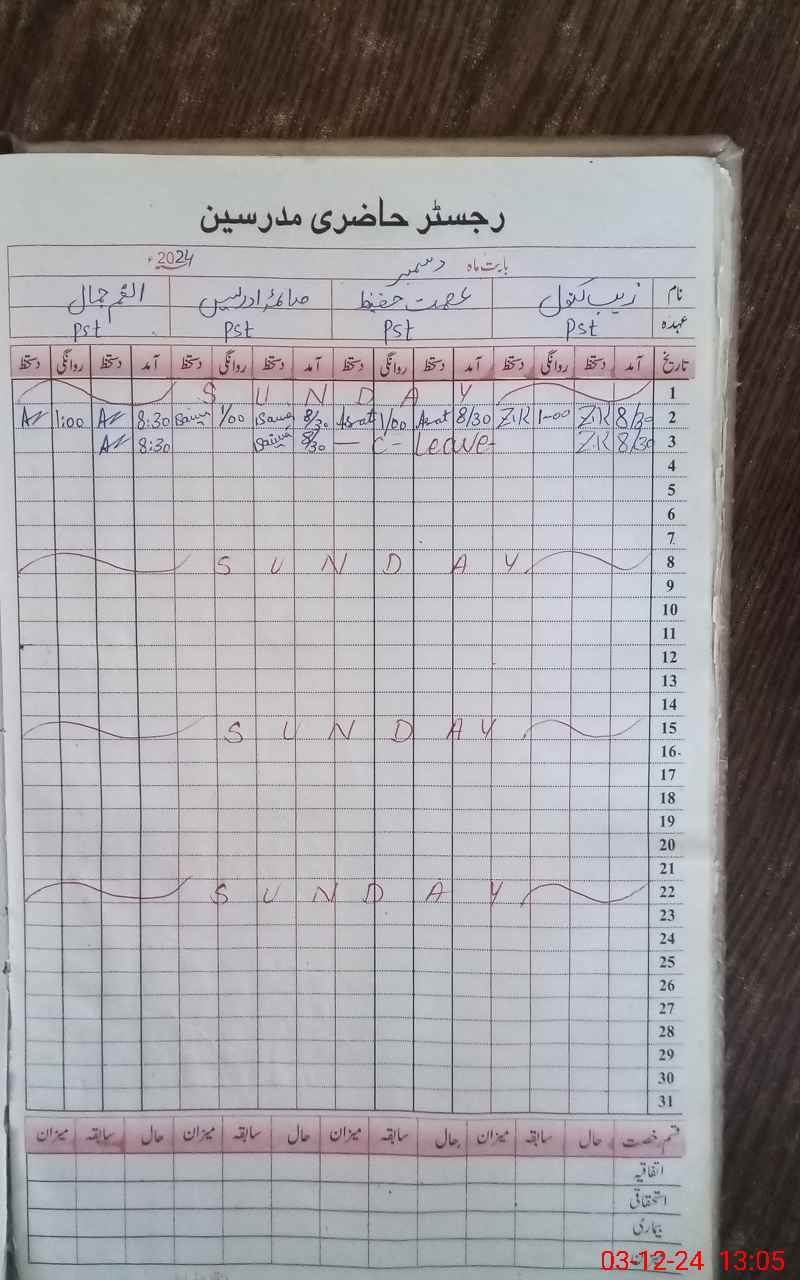 رجسٹر حاضری مدرسین
بابت ماہ دسمبر 2024ء
نام زیب کنول عصمت حفیظ صائمہ ادریس انعم جمال
عہدہ Pst Pst Pst Pst
تاریخ آمد دستخط روانگی دستخط آمد دستخط روانگی دستخط آمد دستخط روانگی دستخط آمد دستخط روانگی دستخط
1 SUNDAY
2 8/30 Z.K 1-00 Z.K 8/30 Asat 1/00 Asat 8/30 1/00 8:30 1:00
3 8/30 Z.K — C - Leave - 8/30 8:30
4
5
6
7
8 SUNDAY
9
10
11
12
13
14
15 SUNDAY
16
17
18
19
20
21
22 SUNDAY
23
24
25
26
27
28
29
30
31
قسم رخصت حال سابقہ میزان حال سابقہ میزان حال سابقہ میزان حال سابقہ میزان
اتفاقیہ
استحقاقی
بیماری
03-12-24 13:05